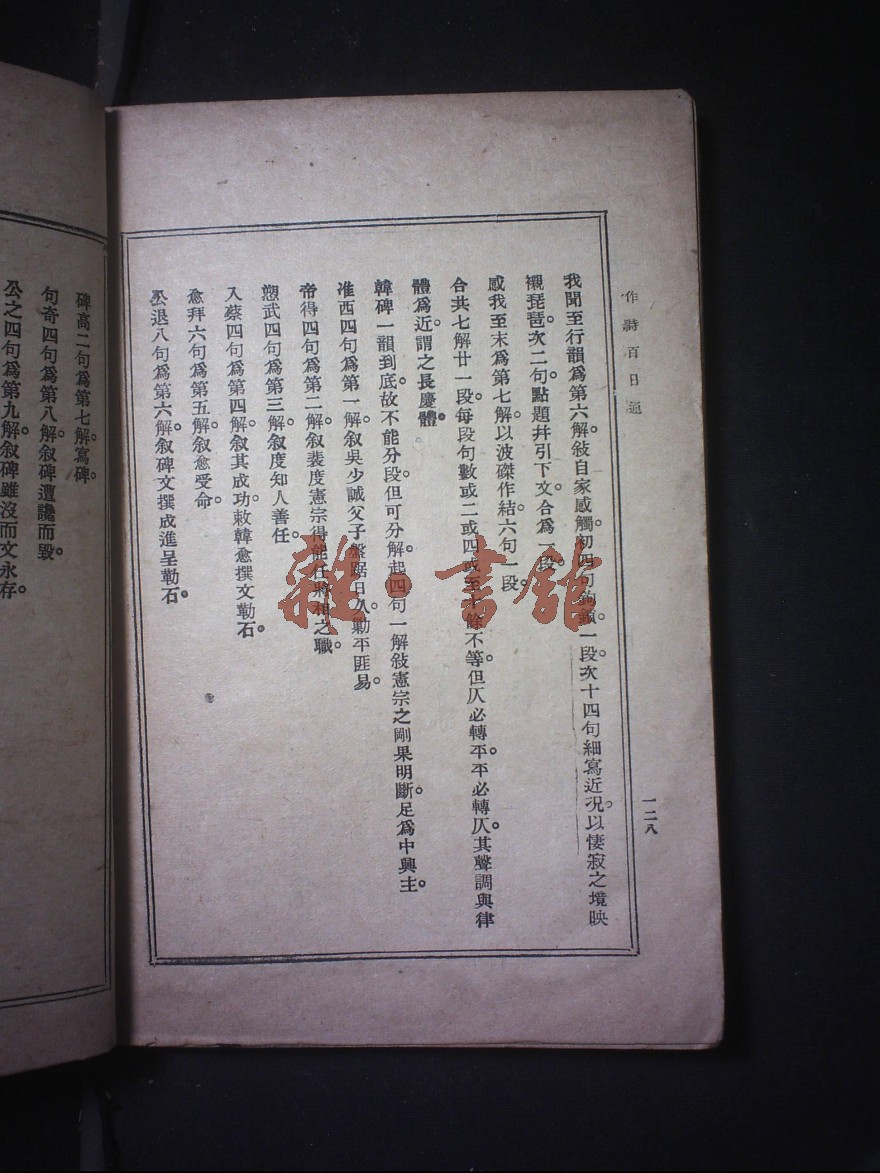 作詩百日通
一二八
我聞至行韻爲第六解。敍自家感觸。初四句鉤鎖。一段。次十四句細寫近況。以悽寂之境映
襯琵琶。次二句點題幷引下文。合爲一段。
感我至末爲第七解。以波磔作結。六句一段。
合共七解廿一段。每段句數或二或四或至十餘不等。但仄必轉平。平必轉仄。其聲調與律
體爲近。謂之長慶體。
韓碑一韻到底。故不能分段。但可分解。起四句一解。敍憲宗之剛果明斷。足爲中興主。
淮西四句爲第一解。叙吳少誠父子盤踞日久。勦平匪易。
帝得四句爲第二解。叙裴度憲宗得能任將相之職。
愬武四句爲第三解。叙度知人善任。
入蔡四句爲第四解。叙其成功。敕韓愈撰文勒石。
愈拜六句爲第五解。叙愈受命。
公退八句爲第六解。叙碑文撰成進呈勒石。
碑高二句爲第七解。寫碑。
句奇四句爲第八解。叙碑遭讒而毀。
公之四句爲第九解。叙碑雖沒而文永存。
雜·書館